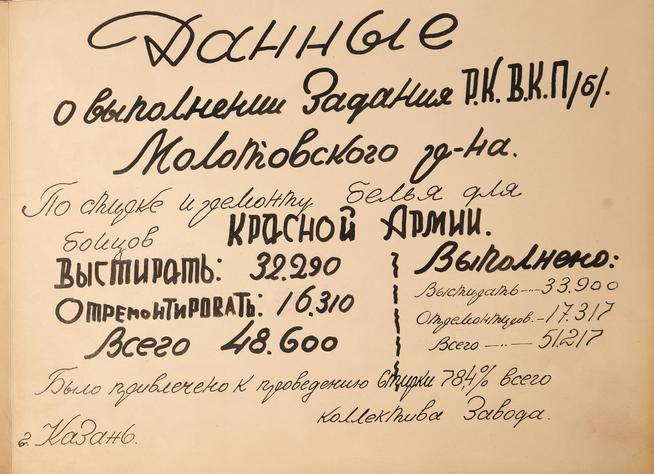 Данные
о выполнении Задания Р.К. В.К.П/б/.
Молотовского р-на.
По стирке и ремонту белья для
бойцов КРАСНОЙ АРМИИ.
Выстирать: 32.290
Отремонтировать: 16.310
Всего 48.600
Выполнено:
Выстирать---33.900
Отремонтиров.-17.317
Всего —··— 51.217
Было привлечено к проведению стирки 78,4% всего
коллектива Завода.
г. Казань.